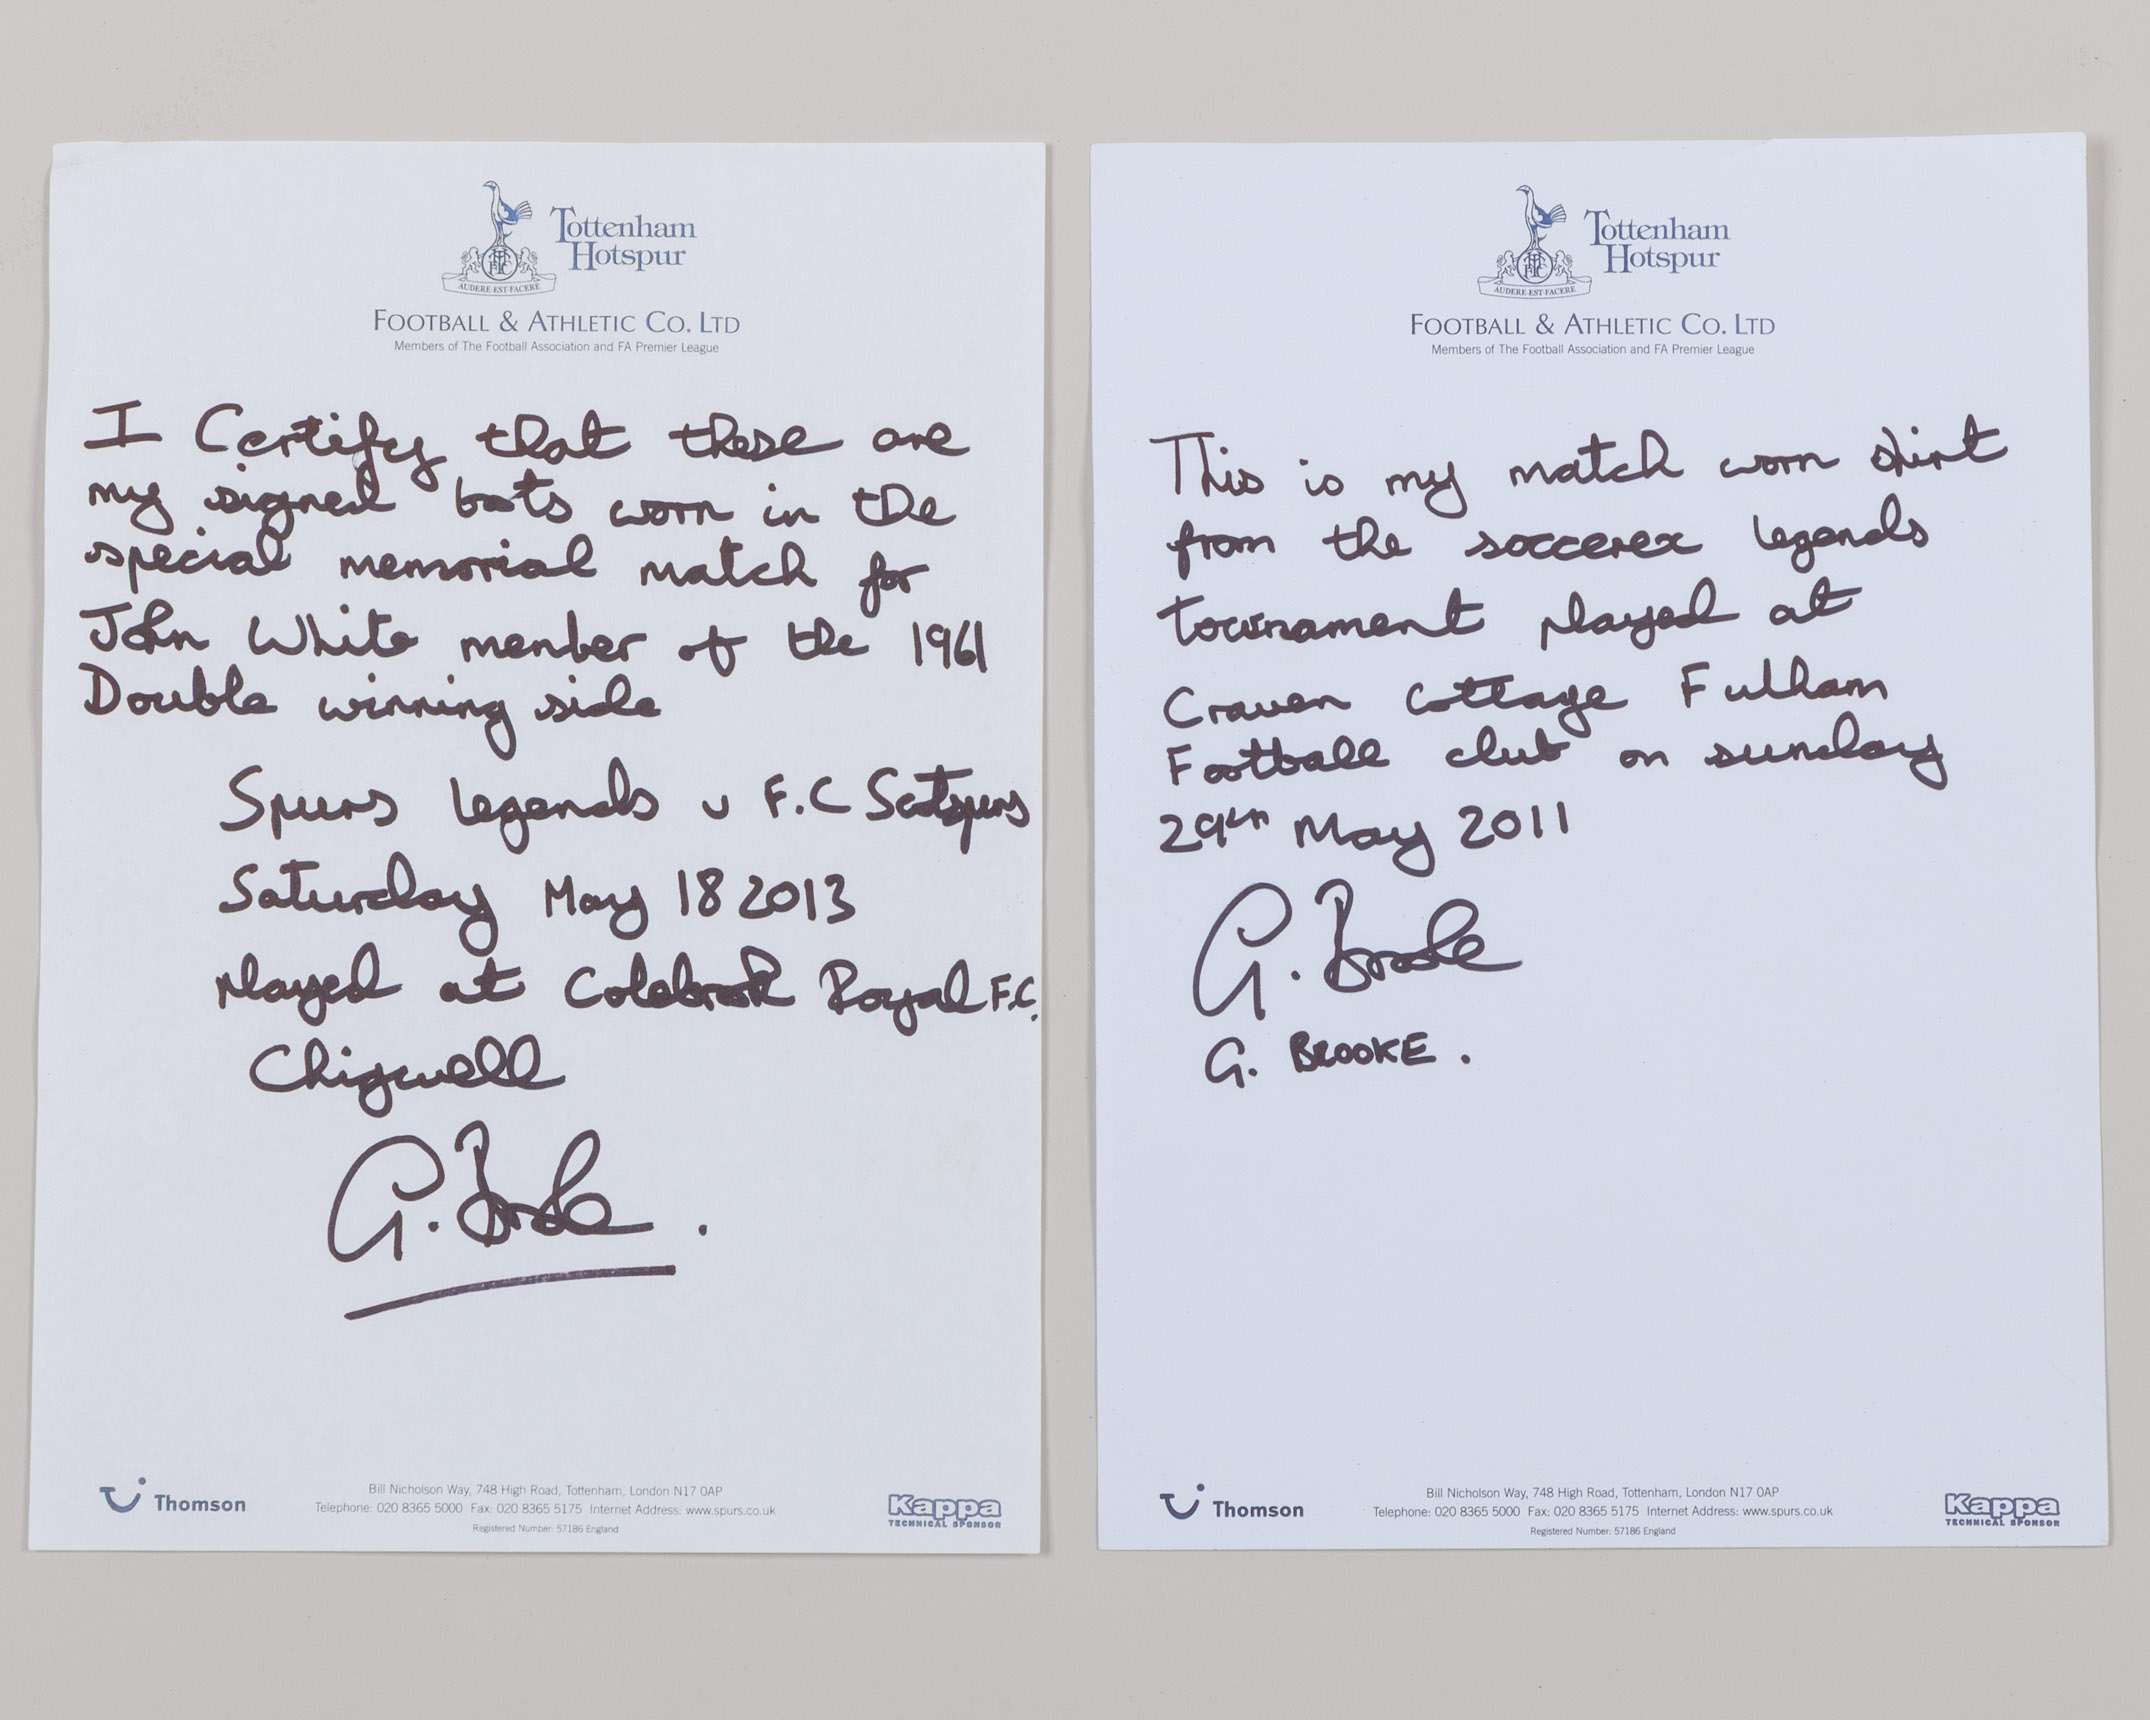 Tottenham
Hotspur
AUDERE·EST·FACERE
FOOTBALL & ATHLETIC CO. LTD
Members of The Football Association and FA Premier League
I Certify that these are
my signed boots worn in the
special memorial match for
John White member of the 1961
Double winning side
Spurs legends v F.C Scotspurs
Saturday May 18 2013
played at Colebrook Royal F.C.
Chigwell
G. Brooke.
Thomson
Bill Nicholson Way, 748 High Road, Tottenham, London N17 0AP
Telephone: 020 8365 5000 Fax: 020 8365 5175 Internet Address: www.spurs.co.uk
Registered Number: 57186 England
Kappa
TECHNICAL SPONSOR
Tottenham
Hotspur
AUDERE·EST·FACERE
FOOTBALL & ATHLETIC CO. LTD
Members of The Football Association and FA Premier League
This is my match worn shirt
from the soccerex legends
tournament played at
Craven Cottage Fulham
Football club on sunday
29th May 2011
G. Brooke
G. BROOKE.
Thomson
Bill Nicholson Way, 748 High Road, Tottenham, London N17 0AP
Telephone: 020 8365 5000 Fax: 020 8365 5175 Internet Address: www.spurs.co.uk
Registered Number: 57186 England
Kappa
TECHNICAL SPONSOR